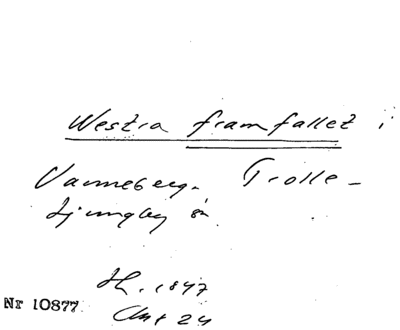 Westra framfallet i
Vanneberga. Trolle-
Ljungby sn
H. 1847
Nr 10877